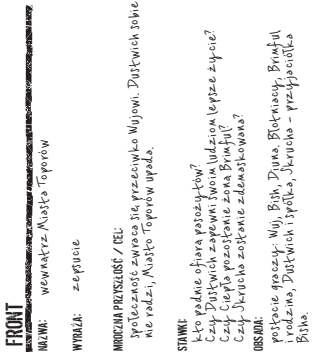 FRONT
NAZWA: wewnątrz Miasta Toporów
WYRAŻA: zepsucie
MROCZNA PRZYSZŁOŚĆ / CEL:
społeczność zwraca się przeciwko Wujowi. Dustwich sobie
nie radzi, Miasto Toporów upada.
STAWKI:
kto padnie ofiarą pasożytów?
Czy Dustwich zapewni swoim ludziom lepsze życie?
Czy Ciepła pozostanie żoną Brimful?
Czy Skrucha zostanie zdemaskowana?
OBSADA:
postacie graczy: Wuj, Bish, Diuna. Błotniacy, Brimful
i rodzina, Dustwich i spółka, Skrucha – przyjaciółka
Bisha.